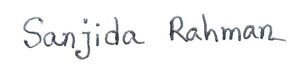 Sanjida Rahman